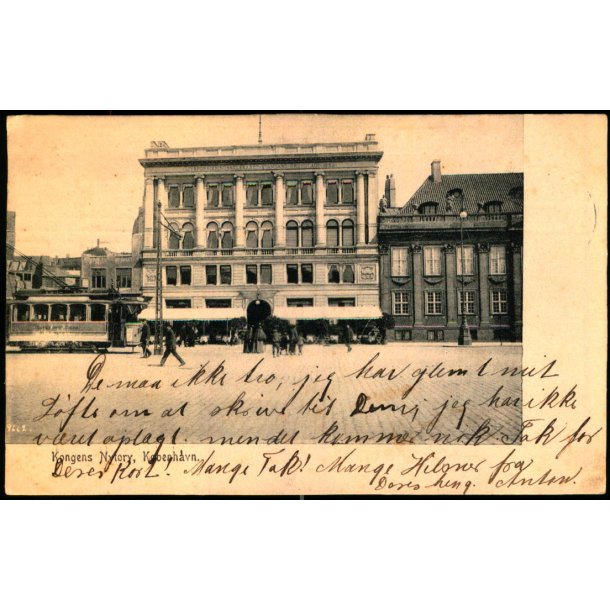 De maa ikke tro, jeg har glemt mit
Løfte om at skrive til Dem, jeg har ikke
været oplagt. men det kommer nok. Tak for
9662.
Kongens Nytorv, København.
Deres Kort! Mange Tak! Mange Hilsner fra
Deres heng. Anton.